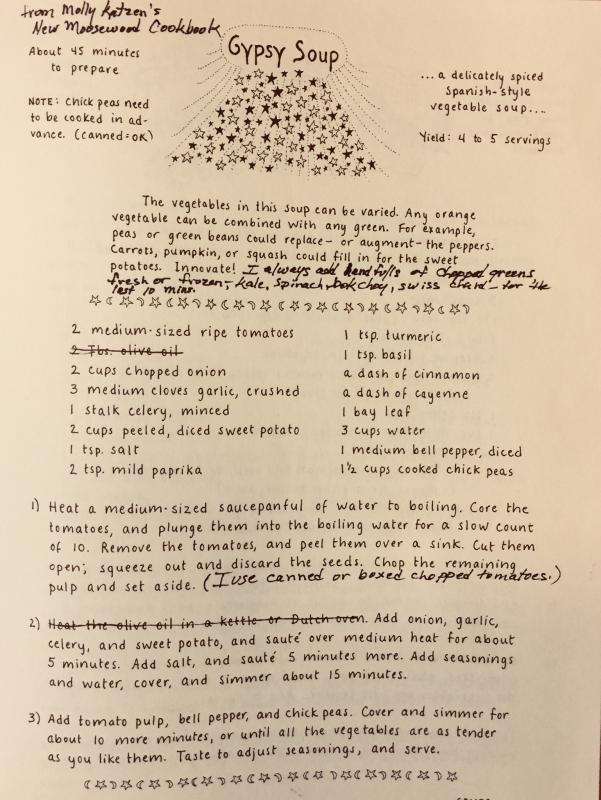 from Molly Katzen's
New Moosewood Cookbook
About 45 minutes
to prepare
NOTE: Chick peas need
to be cooked in ad-
vance. (canned=OK)
Gypsy Soup
...a delicately spiced
Spanish-style
vegetable soup....
Yield: 4 to 5 servings
The vegetables in this soup can be varied. Any orange
vegetable can be combined with any green. For example,
peas or green beans could replace- or augment- the peppers.
Carrots, pumpkin, or squash could fill in for the sweet
potatoes. Innovate! I always add handfulls of chopped greens
fresh or frozen; kale, spinach, bok choy, swiss chard - for the
last 10 mins.
2 medium-sized ripe tomatoes
2 Tbs. olive oil
2 cups chopped onion
3 medium cloves garlic, crushed
1 stalk celery, minced
2 cups peeled, diced sweet potato
1 tsp. salt
2 tsp. mild paprika
1 tsp. turmeric
1 tsp. basil
a dash of cinnamon
a dash of cayenne
1 bay leaf
3 cups water
1 medium bell pepper, diced
1½ cups cooked chick peas
1) Heat a medium-sized saucepanful of water to boiling. Core the
tomatoes, and plunge them into the boiling water for a slow count
of 10. Remove the tomatoes, and peel them over a sink. Cut them
open; squeeze out and discard the seeds. Chop the remaining
pulp and set aside. (I use canned or boxed chopped tomatoes.)
2) Heat the olive oil in a kettle or Dutch oven. Add onion, garlic,
celery, and sweet potato, and sauté over medium heat for about
5 minutes. Add salt, and sauté 5 minutes more. Add seasonings
and water, cover, and simmer about 15 minutes.
3) Add tomato pulp, bell pepper, and chick peas. Cover and simmer for
about 10 more minutes, or until all the vegetables are as tender
as you like them. Taste to adjust seasonings, and serve.